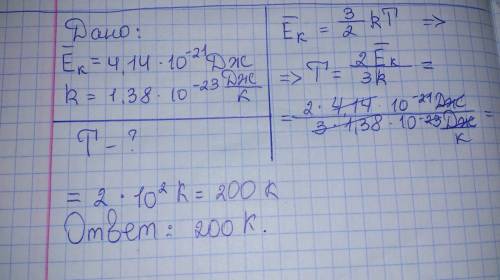 Дано:
Ēк = 4,14 · 10⁻²¹ Дж
k = 1,38 · 10⁻²³ Дж/К
T - ?
Ēк = 3/2 kT =>
=> T = 2Ēк/3k =
= 2 · 4,14 · 10⁻²¹ Дж / 3 · 1,38 · 10⁻²³ Дж/К =
= 2 · 10² К = 200 К
Ответ: 200 К.